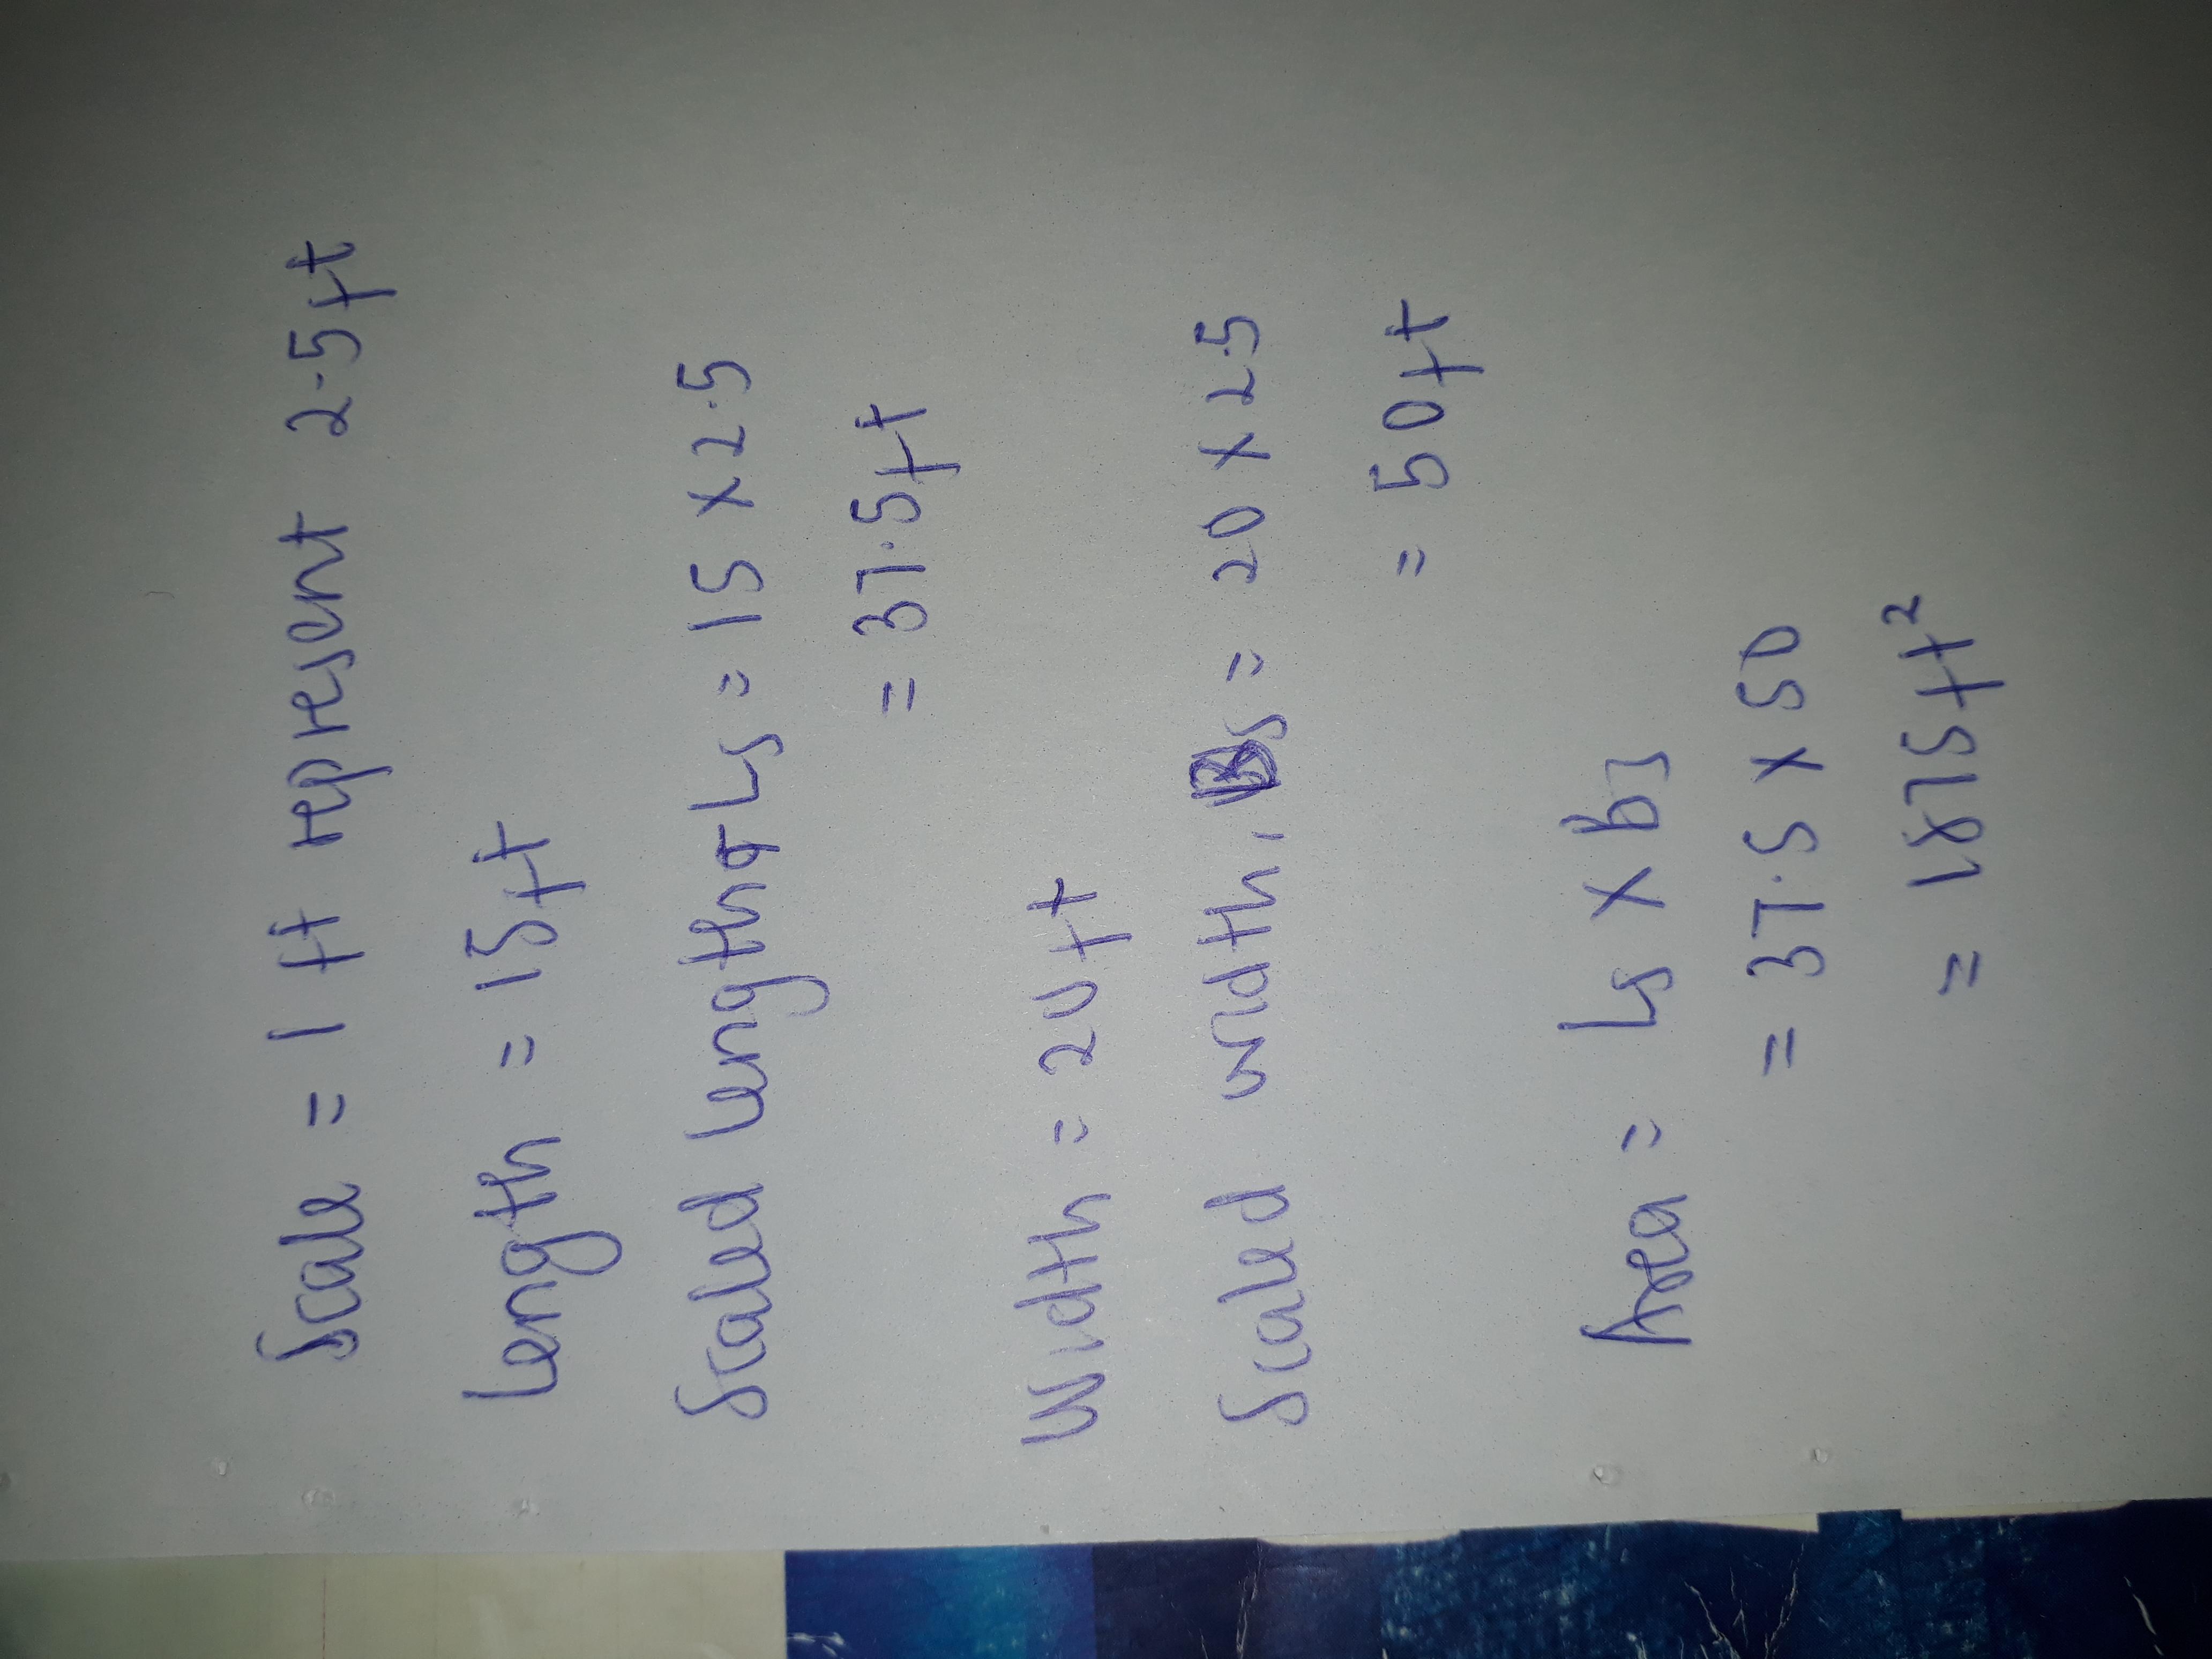 Scale = 1 ft represent 2.5ft
Length = 15ft
Scaled length, Ls = 15 x 2.5
= 37.5ft
Width = 20ft
Scaled width, Bs = 20 x 2.5
= 50ft
Area = Ls x bs
= 37.5 x 50
= 1875ft²